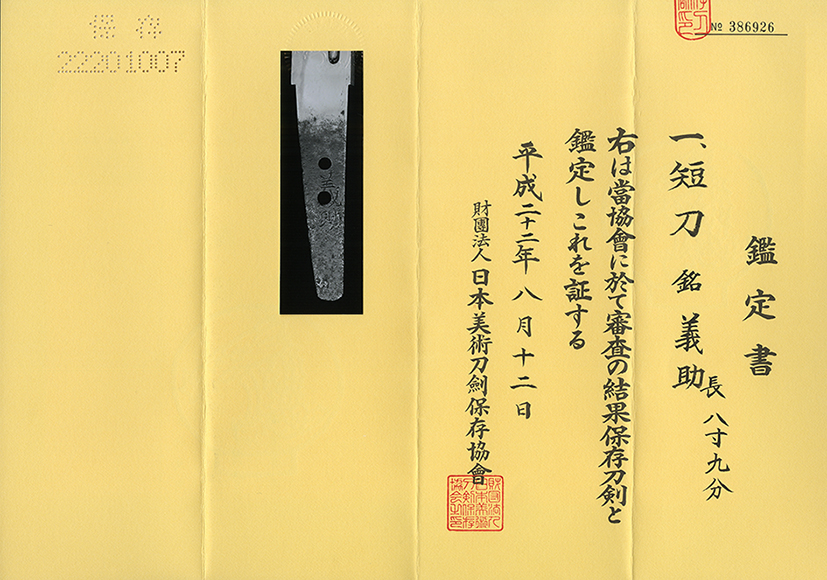 鑑定書
№ 386926
一、短刀 銘 義助
長 八寸九分
右は當協會に於て審査の結果保存刀剣と
鑑定しこれを証する
平成二十二年八月十二日
財團法人 日本美術刀劍保存協會
保存
22201007